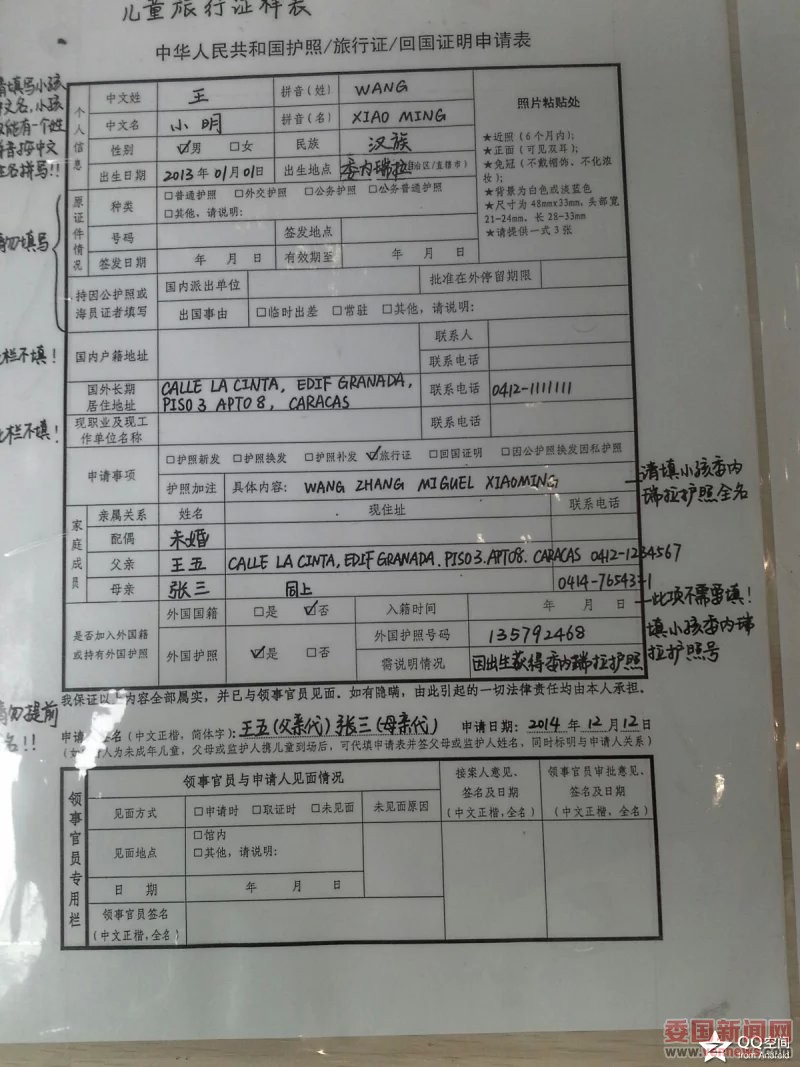 儿童旅行证样表
中华人民共和国护照/旅行证/回国证明申请表
请填写小孩
中文名,小孩
仅能有一个姓
拼音按中文
姓名拼写!!
个人信息
中文姓 王 拼音(姓) WANG
中文名 小明 拼音(名) XIAO MING
性别 ☑男 □女 民族 汉族
出生日期 2013年01月01日 出生地点 委内瑞拉 自治区/直辖市)
照片粘贴处
★近照(6个月内);
★正面(可见双耳);
★免冠(不戴帽饰、不化浓
妆);
★背景为白色或淡蓝色
★尺寸为48mm×33mm,头部宽
21-24mm、长28-33mm
★请提供一式3张
请勿填写
原证件情况
种类 □普通护照 □外交护照 □公务护照 □公务普通护照
□其他,请说明:
号码 签发地点
签发日期 年 月 日 有效期至 年 月 日
持因公护照或
海员证者填写
国内派出单位 批准在外停留期限
出国事由 □临时出差 □常驻 □其他,请说明:
此栏不填!
国内户籍地址 联系人
联系电话
国外长期
居住地址
CALLE LA CINTA, EDIF GRANADA,
PISO 3 APTO 8, CARACAS
联系电话 0412-1111111
此栏不填!
现职业及现工
作单位名称
联系电话
申请事项 □护照新发 □护照换发 □护照补发 ☑旅行证 □回国证明 □因公护照换发因私护照
护照加注 具体内容: WANG ZHANG MIGUEL XIAOMING
请填小孩委内
瑞拉护照全名
家庭成员
亲属关系 姓名 现住址 联系电话
配偶 未婚
父亲 王五 CALLE LA CINTA, EDIF GRANADA. PISO 3. APTO8. CARACAS 0412-1234567
母亲 张三 同上 0414-7654321
是否加入外国籍
或持有外国护照
外国国籍 □是 ☑否 入籍时间 年 月 日
此项不需要填!
外国护照 ☑是 □否 外国护照号码 135792468
需说明情况 因出生获得委内瑞拉护照
填小孩委内瑞
拉护照号
我保证以上内容全部属实,并已与领事官员见面。如有隐瞒,由此引起的一切法律责任均由本人承担。
请勿提前
名!!
申请人签名(中文正楷,简体字):王五(父亲代)张三(母亲代) 申请日期:2014年12月12日
(如申请人为未成年儿童,父母或监护人携儿童到场后,可代填申请表并签父母或监护人姓名,同时标明与申请人关系)
领事官员专用栏
领事官员与申请人见面情况
接案人意见、
签名及日期
(中文正楷,全名)
领事官员审批意见、
签名及日期
(中文正楷,全名)
见面方式 □申请时 □取证时 □未见面 未见面原因
见面地点 □馆内
□其他,请说明:
日 期 年 月 日
领事官员签名
(中文正楷,全名)
委国新闻网
www.venews.com
QQ空间
from Android